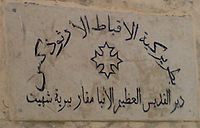 بطريركية الاقباط الأرثوذكس
دير القديس العظيم الانبا مقار ببرية شهيت